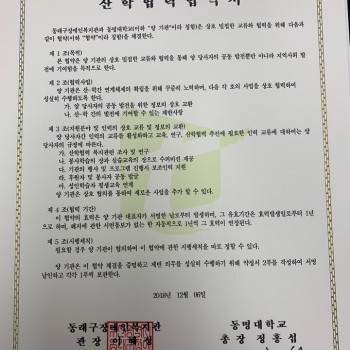 산 학 협 력 협 약 서
동래구장애인복지관과 동명대학교(이하 "양 기관"이라 칭함)은 상호 밀접한 교류와 협력을 위해 다음과
같이 협약(이하 "협약"이라 칭함)을 체결한다.
제 1 조(목적)
본 협약은 양 기관의 상호 밀접한 교류와 협력을 통해 양 당사자의 공동 발전뿐만 아니라 지역사회 발
전에 기여함을 목적으로 한다.
제 2 조(협력사업)
양 기관은 산·학간 연계체제의 확립을 위해 꾸준히 노력하며, 다음 각 호의 사업을 상호 협력하여
성실히 수행하도록 한다.
가. 양 당사자의 공동 발전을 위한 정보의 상호 교환
나. 산·학 간의 발전에 기여할 수 있는 제반사항
제 3 조(지원분야 및 인력의 상호 교류 및 정보의 교환)
양 당사자간 인력의 교류를 활성화하고 교육, 연구, 산학협력 추진에 필요한 인력 교류에 대하여는 양
당사자의 규정에 따른다.
가. 산학협력 복지관련 조사 및 연구
나. 봉사학습의 장과 실습교육의 장으로 수의이전 제공
다. 기관의 행사 및 프로그램 진행시 보조인력 지원
라. 후원자 및 봉사자 공동 발굴
마. 성인학습자 평생교육 연계
양 기관은 상호 협의를 통하여 새로운 사업을 추가 할 수 있다.
제 4 조(협력 기간)
이 협약의 효력은 양 기관 대표자가 서명한 날로부터 발생하며, 그 유효기간은 효력발생일로부터 1년
으로 하며, 해지에 관한 서면통보가 없는 한 자동적으로 1년씩 그 효력이 연장된다.
제 5 조(시행세칙)
필요할 경우 양 기관이 협의하여 이 협약에 관한 시행세칙을 따로 정할 수 있다.
양 기관은 이 협약 체결을 증명하고 제반 의무를 성실히 수행하기 위해 약정서 2부를 작성하여 서명
날인하고 각각 1부씩 보관한다.
2018년 12월 06일
동래구장애인복지관
관 장 이 해 성
동명대학교
총 장 정 홍 섭